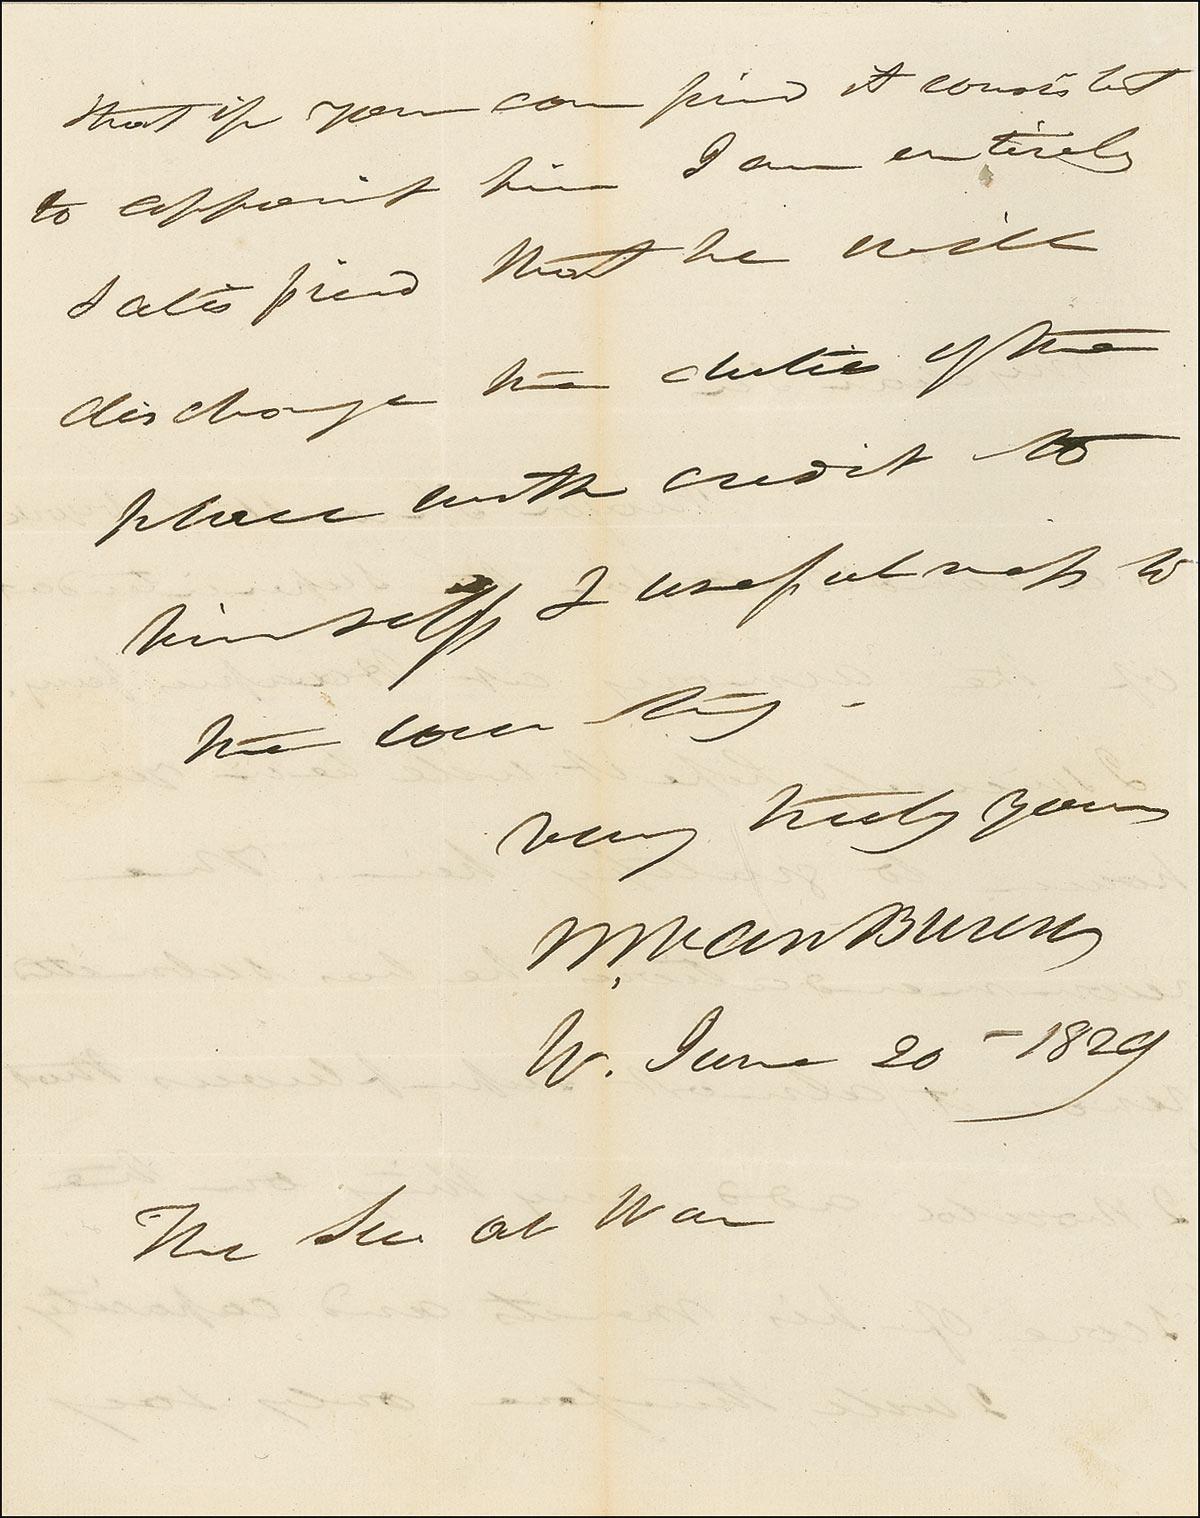 that if you can find it consistent
to appoint him I am entirely
satisfied that he will
discharge the duties of the
place with credit to
himself & usefulness to
the country -
very truly yours
M, Van Buren
W. June 20 - 1829
The Sec at War